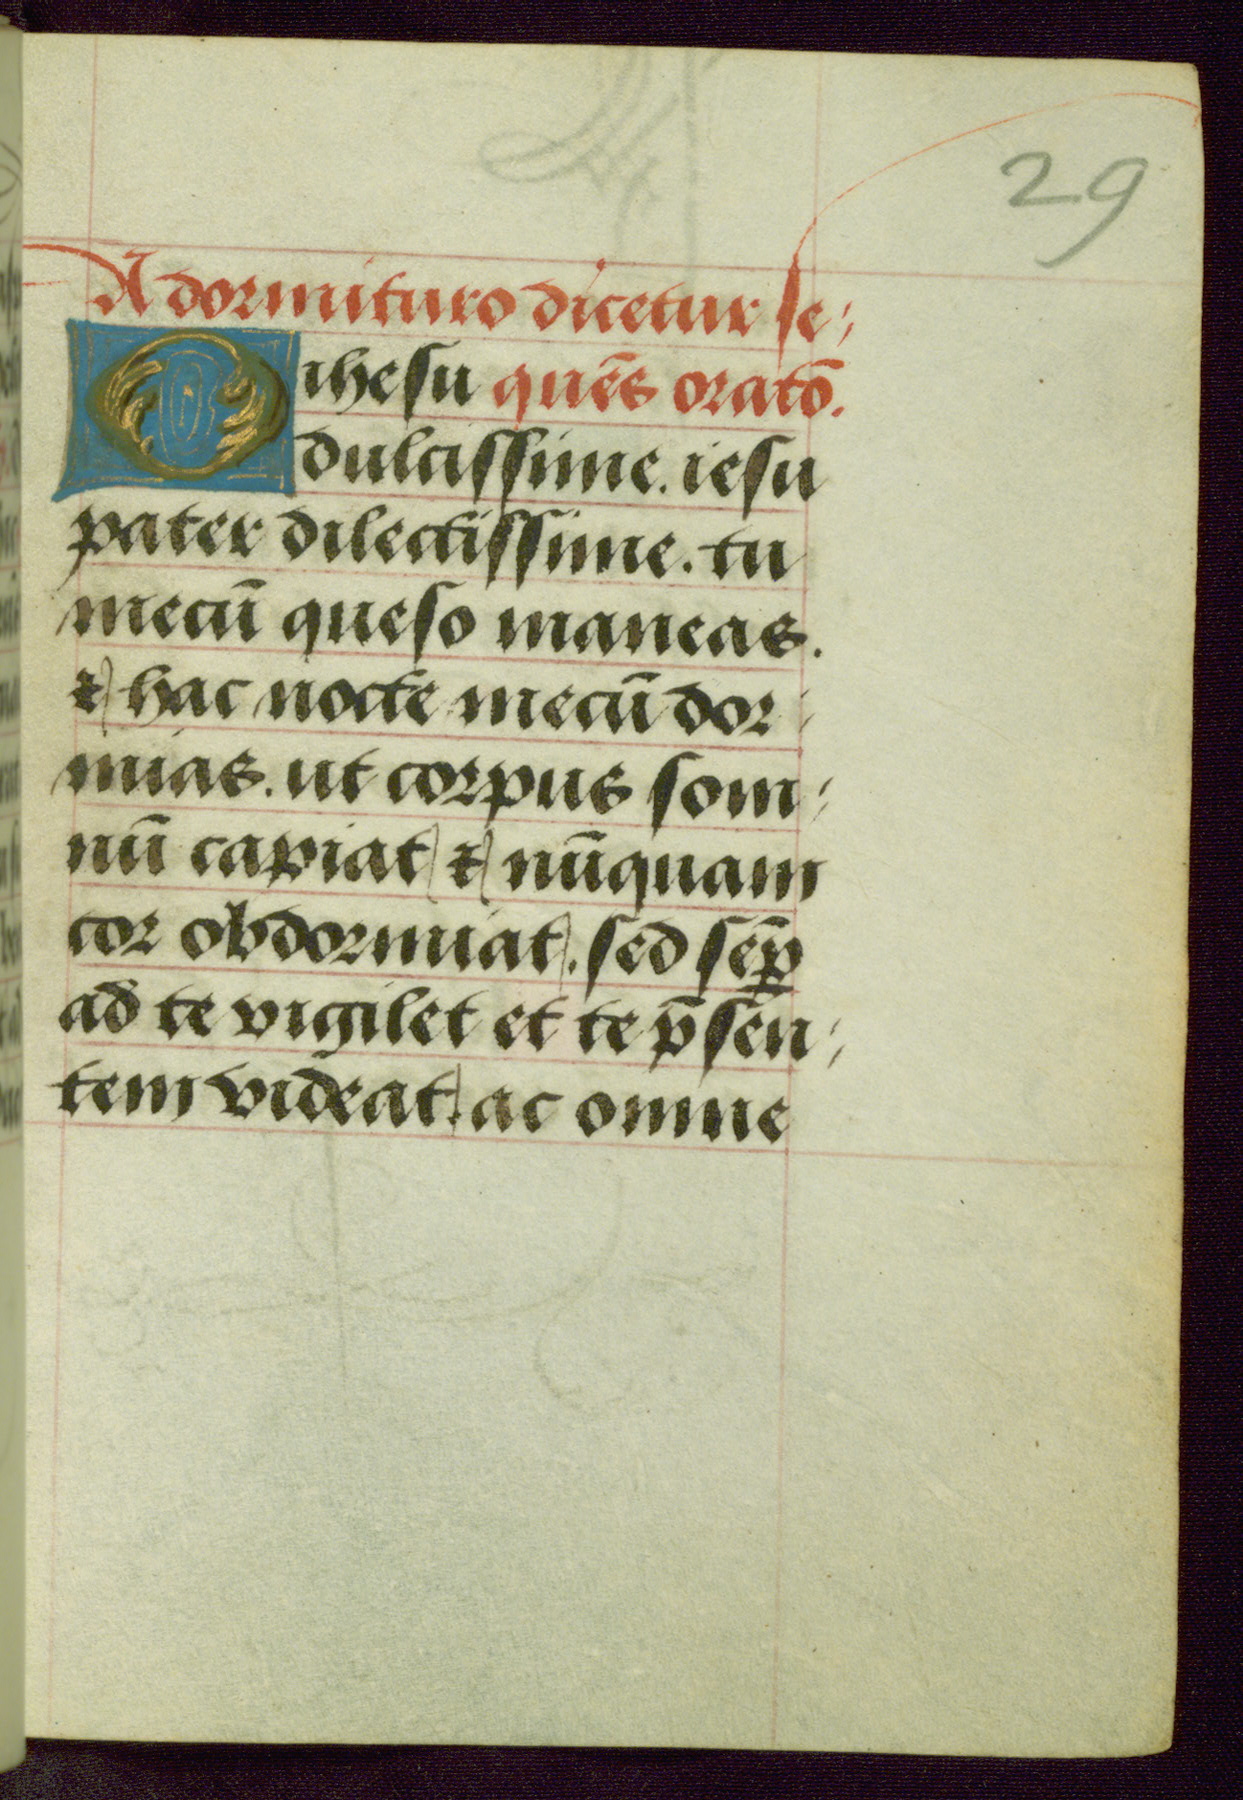 29
A dormituro dicetur se⸗
O ihesu quēs oratō.
dulcissime. iesu
pater dilectissime. tu
mecū queso maneas.
⁊ hac nocte mecū dor⸗
mias. ut corpus som⸗
nū capiat ⁊ nūquam
cor obdormiat. sed semꝑ
ad te vigilet et te p̄sen⸗
tem videat. ac omne